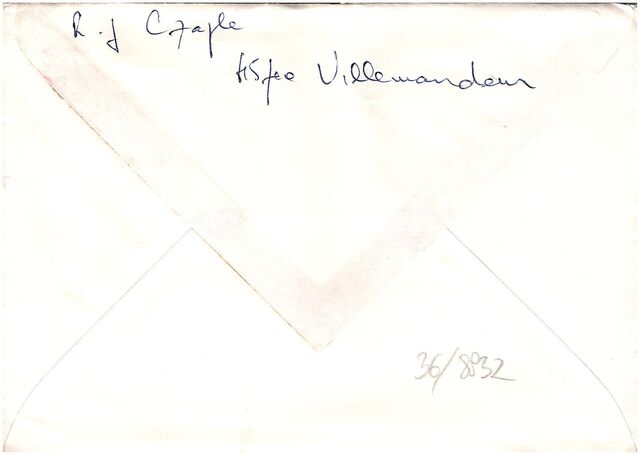 R. J Czaple
45700 Villemandeur
36/8932